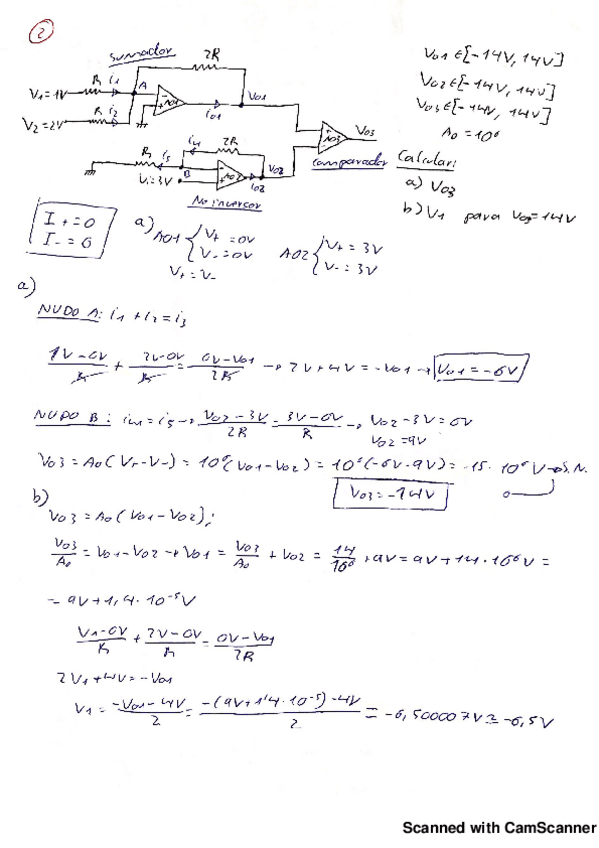 2
Sumador
2R
V1=1V R i1 A
AO1 i01 V01
V2=2V R i2
V01 ∈ [-14V, 14V]
V02 ∈ [-14V, 14V]
V03 ∈ [-14V, 14V]
A0 = 10⁶
AO3 V03
R i5 i4 2R
B AO2 V02
Vi=3V i02
Comparador
No inversor
Calcular:
a) V03
b) V1 para V03=14V
I+=0
I-=0
a) AO1 { V+ = 0V
V- = 0V
V+ = V-
AO2 { V+ = 3V
V- = 3V
a)
NUDO A: i1 + i2 = i3
1V-0V/R + 2V-0V/R = 0V-V01/2R → 2V+4V = -V01 → V01 = -6V
NUDO B: i4 = i5 → V02-3V/2R = 3V-0V/R → V02-3V=6V
V02=9V
V03 = A0(V+-V-) = 10⁶(V01-V02) = 10⁶(-6V-9V) = -15·10⁶V → S.N.
V03=-14V
b)
V03 = A0(V01-V02);
V03/A0 = V01-V02 → V01 = V03/A0 + V02 = 14/10⁶ + 9V = 9V+14·10⁻⁶V =
= 9V+1,4·10⁻⁵V
V1-0V/R + 2V-0V/R = 0V-V01/2R
2V1+4V=-V01
V1 = -V01-4V/2 = -(9V+1'4·10⁻⁵)-4V/2 = -6,500007V ≅ -6,5V
Scanned with CamScanner